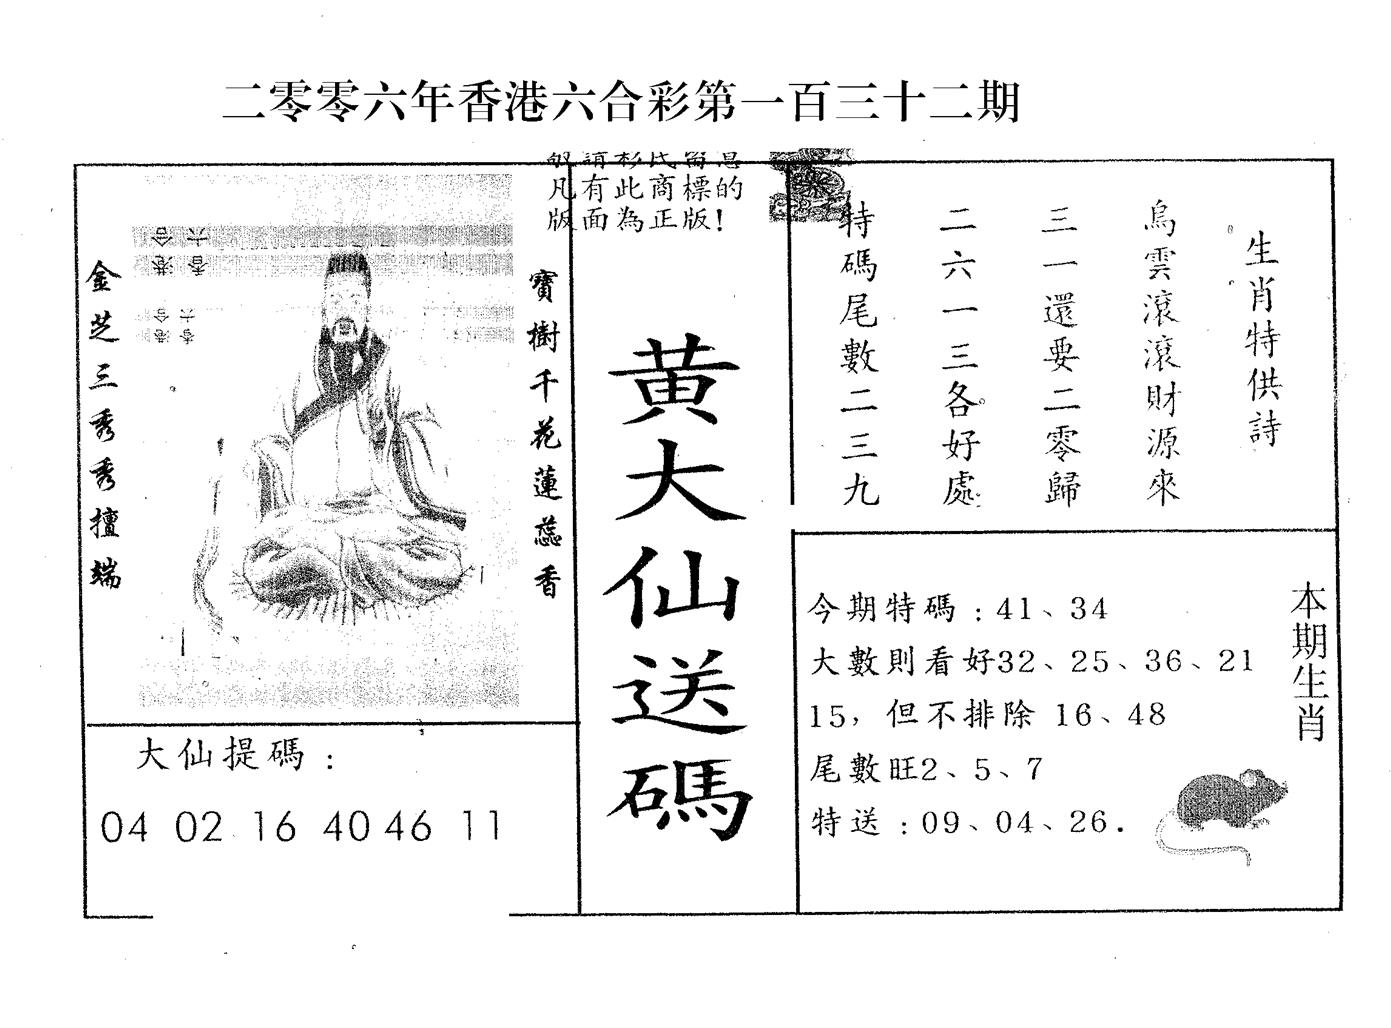 二零零六年香港六合彩第一百三十二期
凡有此商標的
版面為正版!
金芝三秀秀擅端
寶樹千花蓮蕊香
黄大仙送碼
生肖特供詩
烏雲滾滾財源來
三一還要二零歸
二六一三各好處
特碼尾數二三九
大仙提碼：
04 02 16 40 46 11
本期生肖
今期特碼：41、34
大數則看好32、25、36、21
15，但不排除 16、48
尾數旺2、5、7
特送：09、04、26.